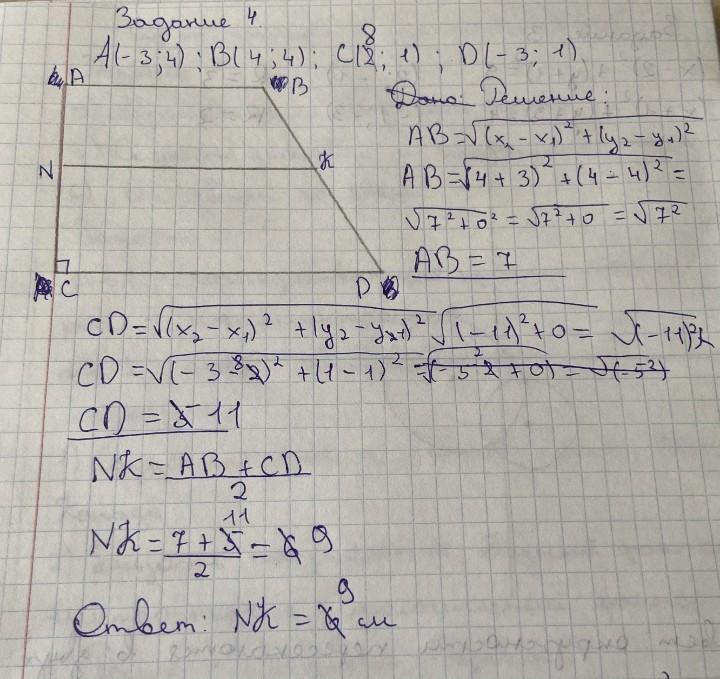 Задание 4
A(-3;4); B(4;4); C(8;1); D(-3;1)
A B
Решение:
AB=√(x₂-x₁)²+(y₂-y₁)²
N K
AB=√(4+3)²+(4-4)²=
√7²+0²=√7²+0=√7²
AB=7
C D
CD=√(x₂-x₁)²+(y₂-y₁)² √(-11)²+0=√(-11)²
CD=√(-3-8)²+(1-1)²
CD=11
NK=AB+CD/2
NK=7+11/2=9
Ответ: NK=9 см